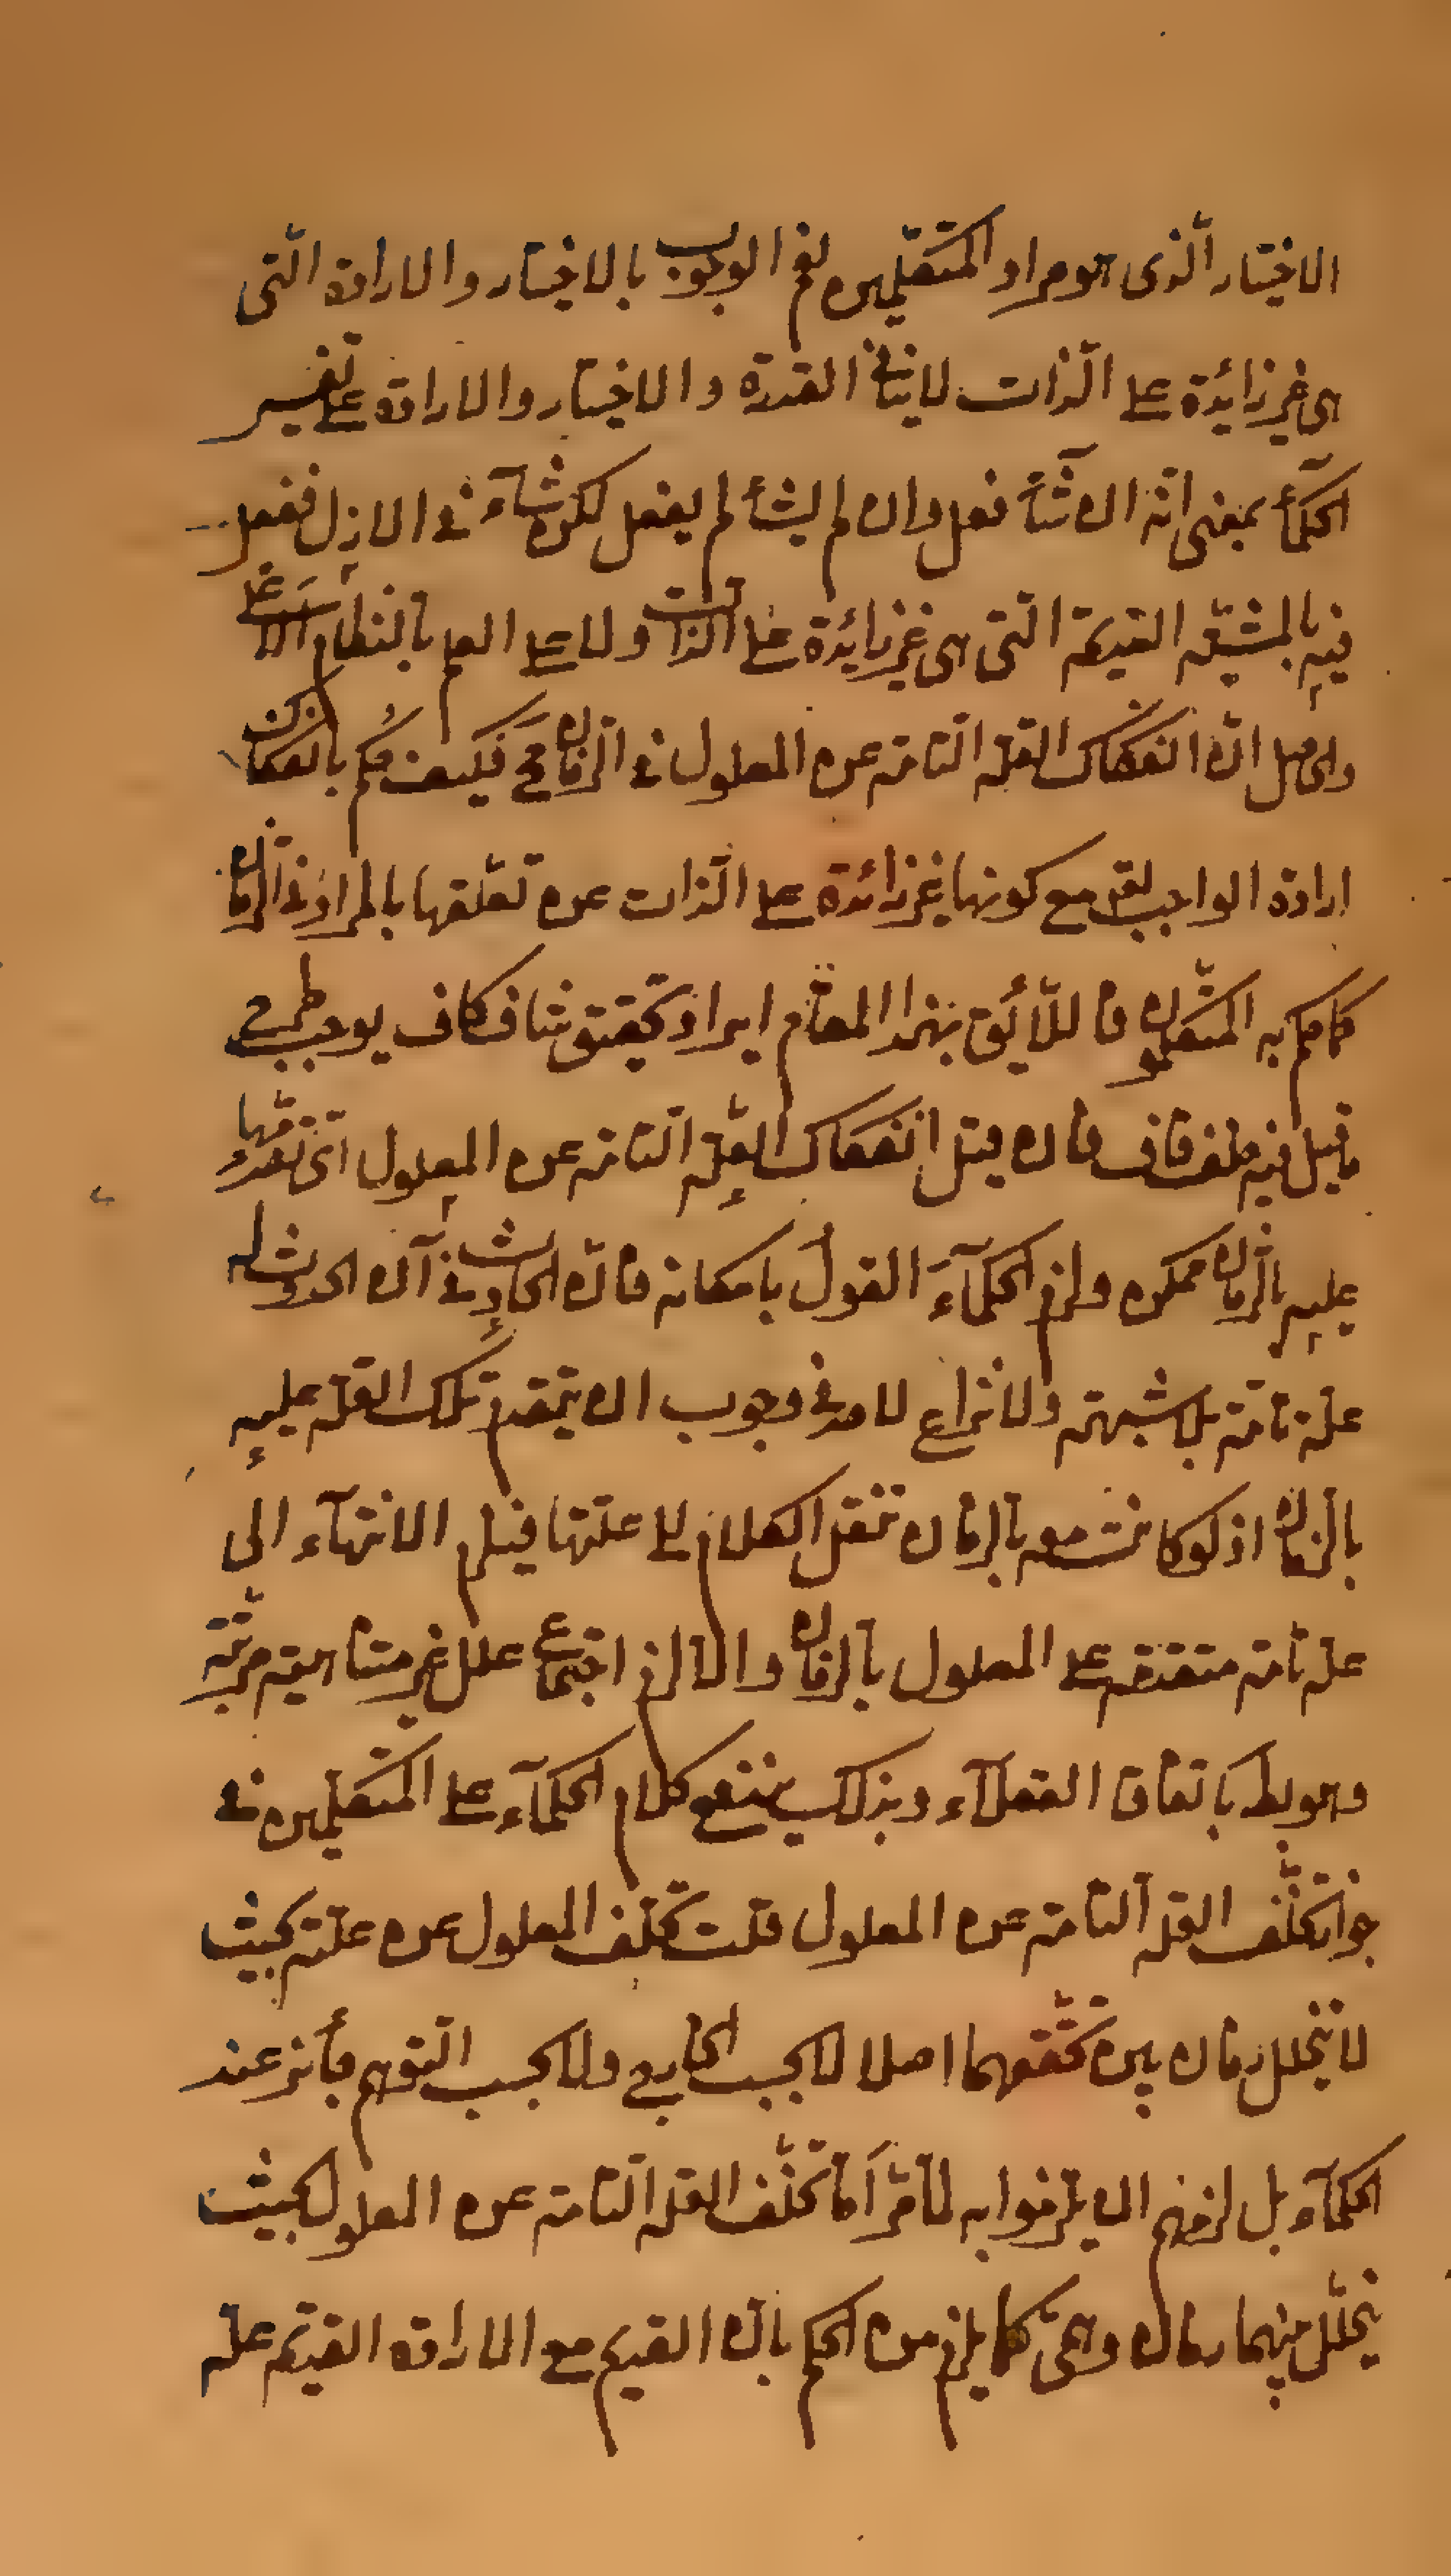 الاختيار الّذى هو مراد المتكلّمين نعم الوجوب بالاختيار والارادة الّتى
هى غير زائدة على الّذات لا ينافى القدرة والاختيار والارادة على تفسير
الحكمآء بمعنى انّه ان شآء فعل وان لم يشأ لم يفعل لكن شآء فى الازل ففعل
فيه بالمشيّة القديمة الّتى هى غير زائدة على الذات ولا على العلم بالنظام الاعلى
والحاصل انّ انفكاك العلّة التامة عن المعلول فى الزمان مح فكيف حكم بانفكاك
ارادة الواجب تعالى مع كونها غير زائدة على الّذات عن تعلّقها بالمراد فى الزمان
كما حكم به المتكلمون فاللّائق بهذا المقام ايراد تحقيق شاف كاف يوجب طرح
ما قيل فيه خلف قاف فان قيل انفكاك العلّة التامة عن المعلول اى تقدّمها
عليه بالزمان ممكن ولزم الحكمآء القول بامكانه فانّ الحادث فى آن الحدوث له
علة تامّة بلا شبهة ولا نزاع لاحد فى وجوب ان يتقدم تلك العلة عليه
بالزمان اذ لو كانت معه بالزمان ننقل الكلام الى علتها فيلزم الانتهآء الى
علة تامة متقدمة على المعلول بالزمان والّا لزم اجتماع علل غير متناهية مرتّبة
وهو بط باتفاق العقلآء وبذلك يندفع كلام الحكمآء على المتكلّمين فى
جواز تخلّف العلة التامة عن المعلول قلت تخلّف المعلول عن علته بحيث
لا يتخلل زمان بين تحقّقهما اصلا لا بحسب الخارج ولا بحسب التوهم جائز عند
الحكمآء بل لزمهم ان يلزموا به لما مرّ امّا تخلّف العلة التامة عن المعلول بحيث
يتخلّل بينهما زمان وهمىّ كما يلزم من الحكم بان القديم مع الارادة القديمة علة